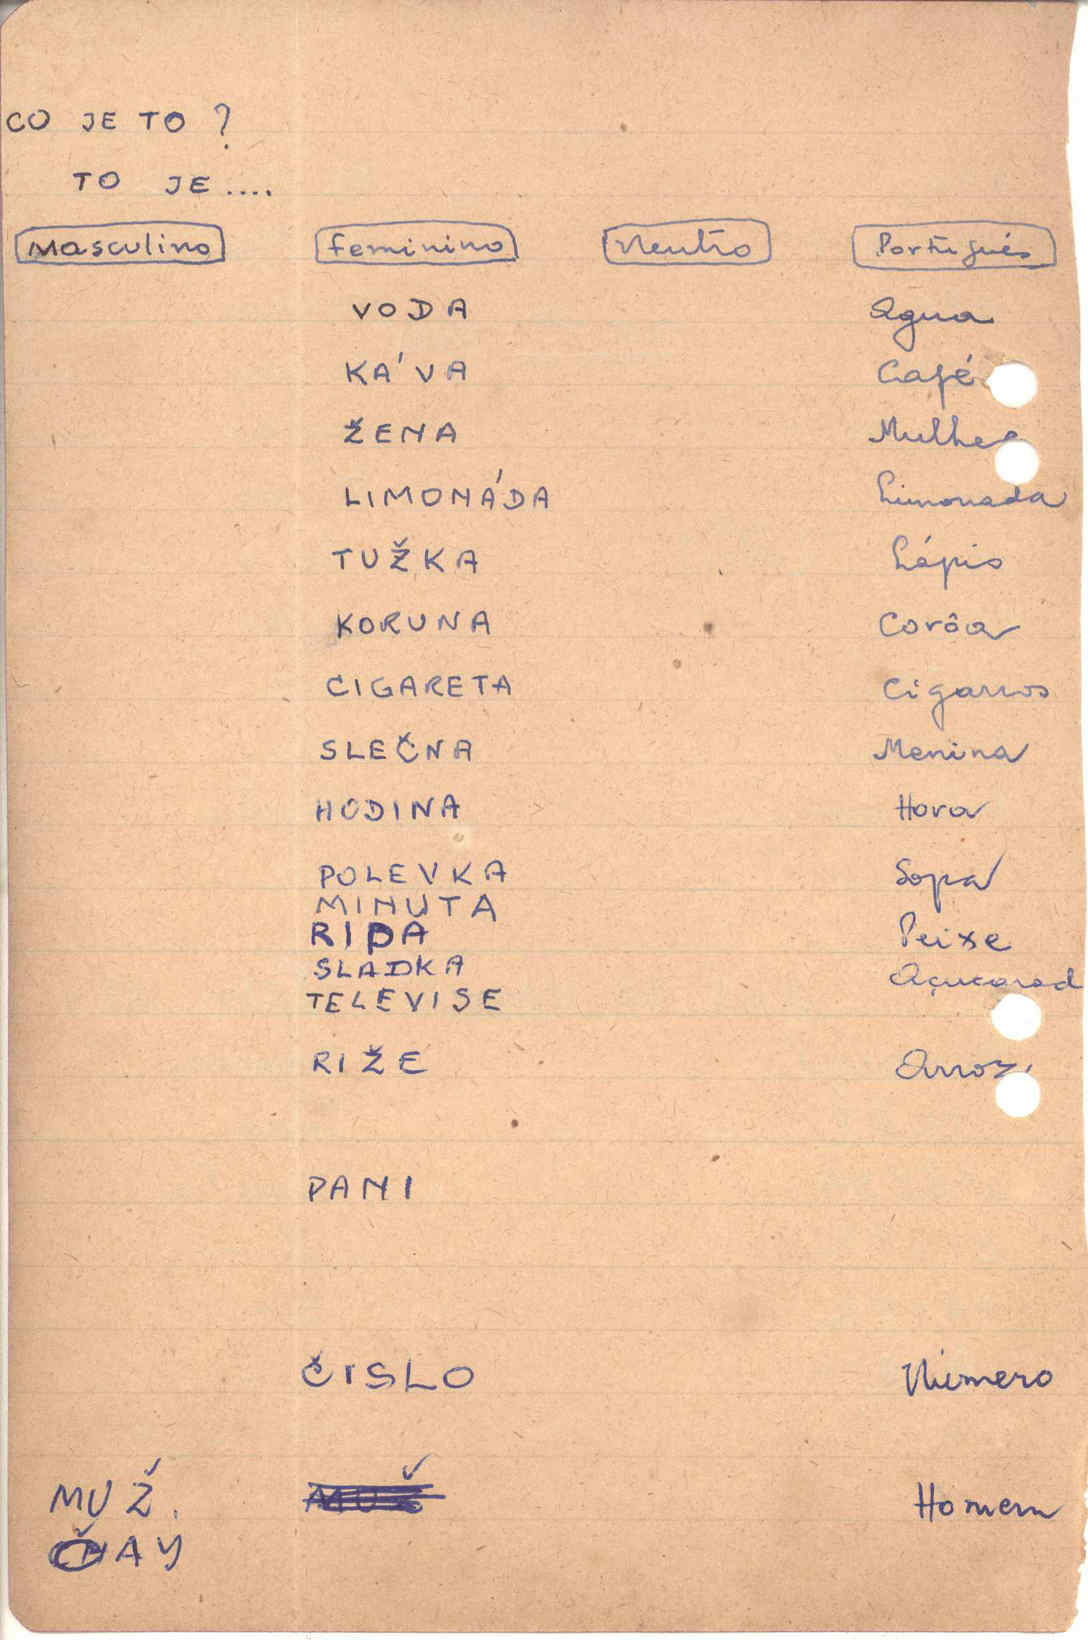 CO JE TO ?
TO JE ....
Masculino feminino Neutro Português
VODA Agua
KÁVA Café
ŽENA Mulher
LIMONÁDA Limonada
TUŽKA Lápis
KORUNA Corôa
CIGARETA Cigarros
SLEČNA Menina
HODINA Hora
POLEVKA Sopa
MINUTA
RIBA Peixe
SLADKA Açucarad
TELEVISE
RIŽE Arroz
PANI
ČISLO Número
MUŽ. MUŽ Homem
ČAY